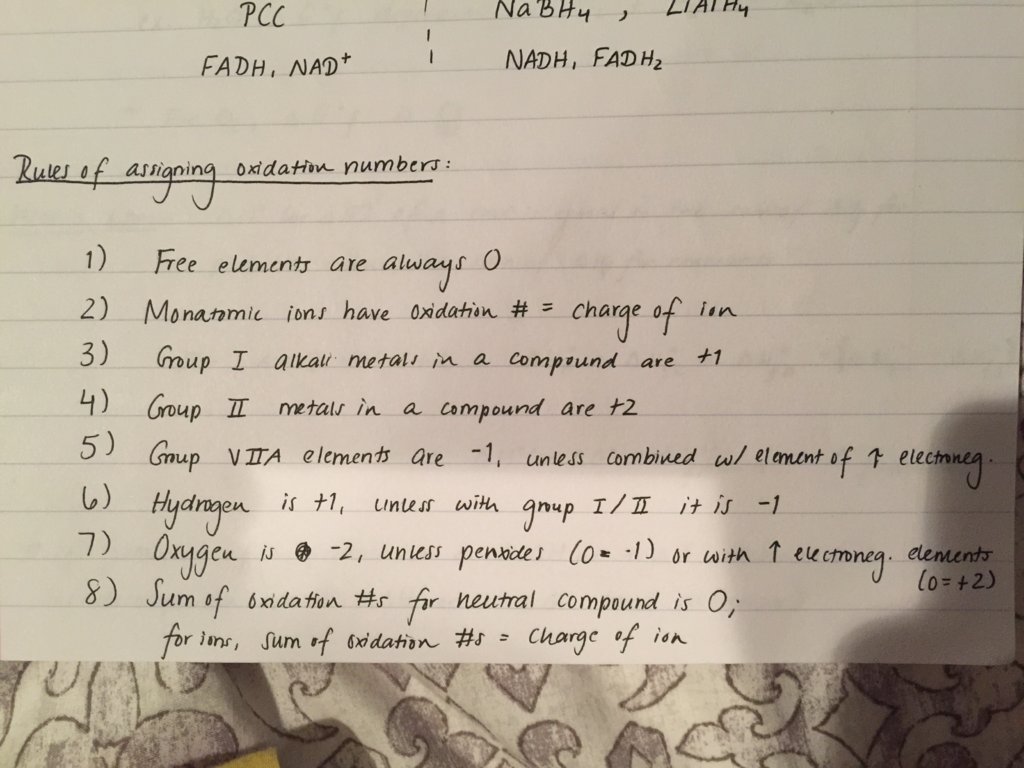 PCC NaBH4 , LiAlH4
FADH, NAD+ NADH, FADH2
Rules of assigning oxidation numbers:
1) Free elements are always 0
2) Monatomic ions have oxidation # = charge of ion
3) Group I alkali metals in a compound are +1
4) Group II metals in a compound are +2
5) Group VIIA elements are -1, unless combined w/ element of ↑ electroneg.
6) Hydrogen is +1, unless with group I/II it is -1
7) Oxygen is -2, unless peroxides (O = -1) or with ↑ electroneg. elements
(O = +2)
8) Sum of oxidation #s for neutral compound is 0;
for ions, sum of oxidation #s = charge of ion